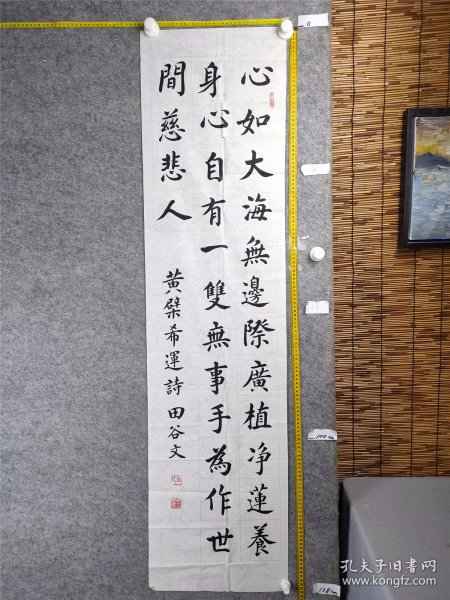 心如大海無邊際廣植净蓮養
身心自有一雙無事手為作世
間慈悲人
黄檗希運詩 田谷文
0
100cm
138cm
孔夫子旧书网
www.kongfz.com